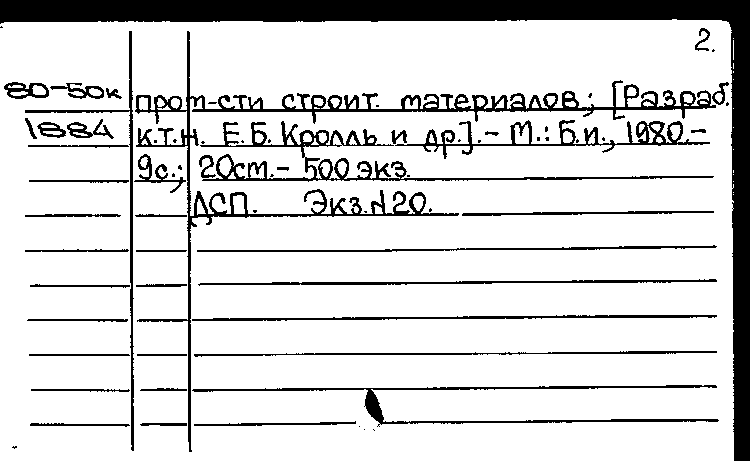 2.
80-50к пром-сти строит. материалов; [Разраб.
1884 к.т.н. Е.Б. Кролль и др.].- М.: Б.и., 1980.-
9с.; 20см.- 500 экз.
ДСП. Экз.№20.